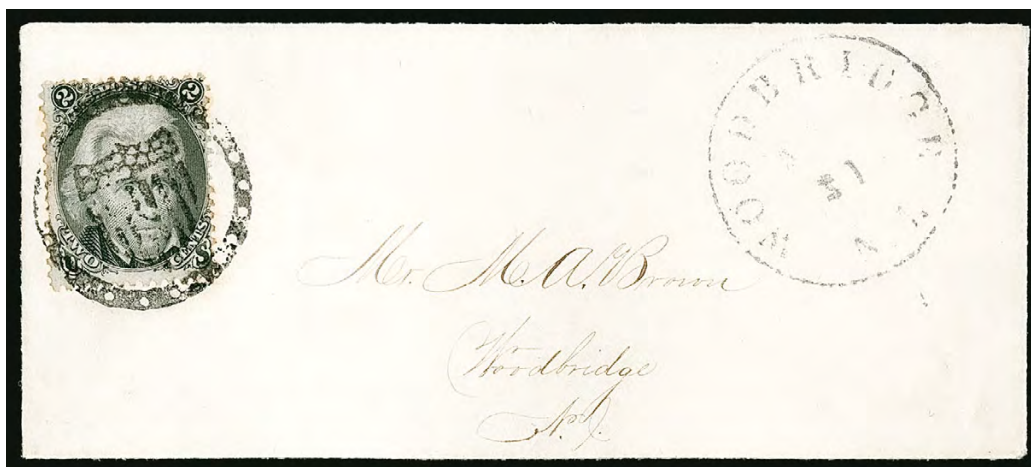 2 2
U.S. POSTAGE
TWO CENTS
WOODBRIDGE
N.J.
Mr. M. A. Brown
Woodbridge
N.J.